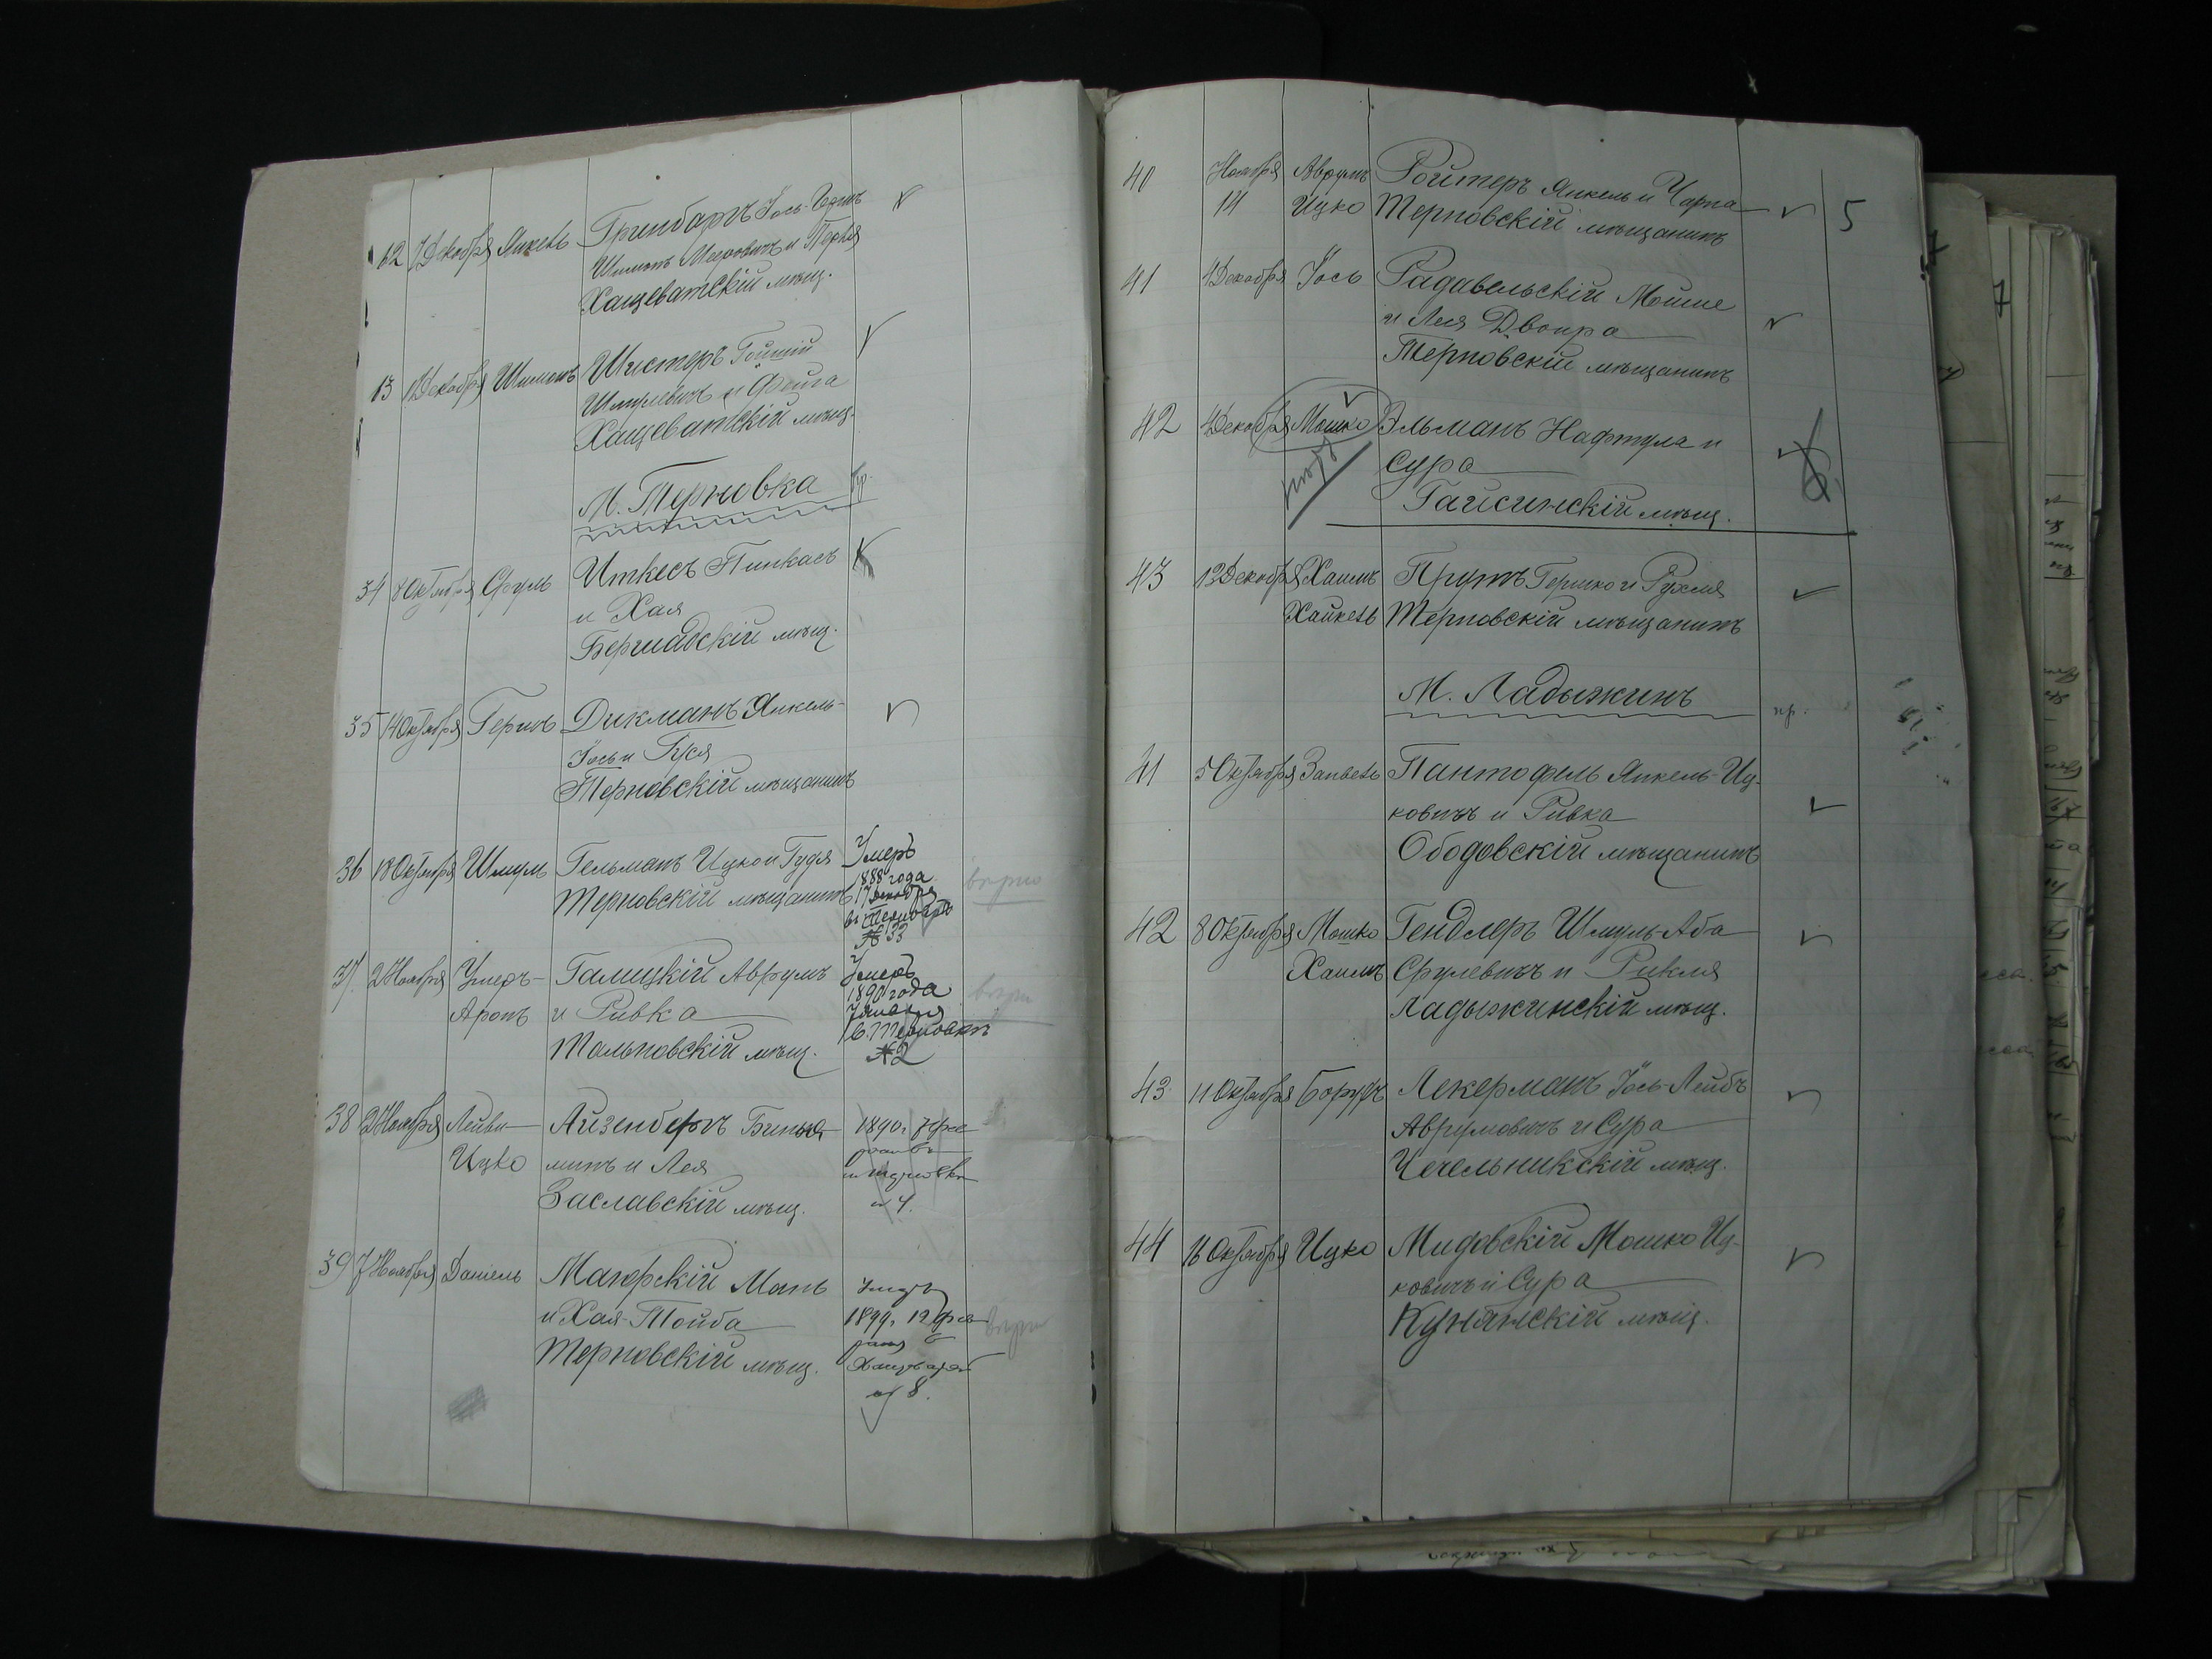 12 7 Декабря Янкель Гринбаргъ Іось-Герш
Шимонъ Мееровичъ и Перля
Хащеватскій мѣщ.
13 11 Декабря Шимонъ Шистеръ
Шмулевичъ и Фейга
Хащеватскій мѣщ.
М. Терновка
34 8 Октября Сруль Иткесъ Пинкасъ
и Хая
Бершадскій мѣщ.
35 14 Октября Гершъ Дикманъ Янкель-
Іось и Гуся
Терновскій мѣщанинъ
36 18 Октября Шмуль Гельманъ Ицко и Гудя
Терновскій мѣщанинъ
Умеръ
1888 года
17 Декабря
№ 33
вѣрно
37 2 Ноября Умеръ-
Аронъ
Галицкій Аврумъ
и Ривка
Тальновскій мѣщ.
Умеръ
1890 года
7 Января
в. Терновкѣ
№ 2
38 2 Ноября Лейви-
Ицко
Айзенбергъ Бинья-
минъ и Лея
Заславскій мѣщ.
1890 г. 7 фев
№ 4.
39 7 Ноября Даніель Магорскій Мань
и Хая-Тойба
Терновскій мѣщ.
12 фев
№ 8.
40 Ноября Аврумъ Ройтеръ Янкель и Чарна
14 Ицко Терновскій мѣщанинъ
5
41 4 Декабря Іось Радавельскій Мойше
и Лея Двойра
Терновскій мѣщанинъ
42 4 Декабря Мошко Эльманъ Нафтула и
Сура
Гайсинскій мѣщ.
43 12 Декабря Хаимъ Прутъ Гершко и Рухля
Хайкель Терновскій мѣщанинъ
М. Ладыжинъ
пр.
41 5 Октября Занвель Пантофель Янкель-Иц-
ковичъ и Ривка
Ободовскій мѣщанинъ
42 8 Октября Мошко Гендлеръ Шмуль-Аба
Хаимъ Срулевичъ и Рикля
Ладыжинскій мѣщ.
43 11 Октября Борухъ Лекерманъ Іось-Лейбъ
Аврумовичъ и Сура
Чечельникскій мѣщ.
44 16 Октября Ицко Мидовскій Мошко Иц-
ковичъ и Сура
Кунянскій мѣщ.